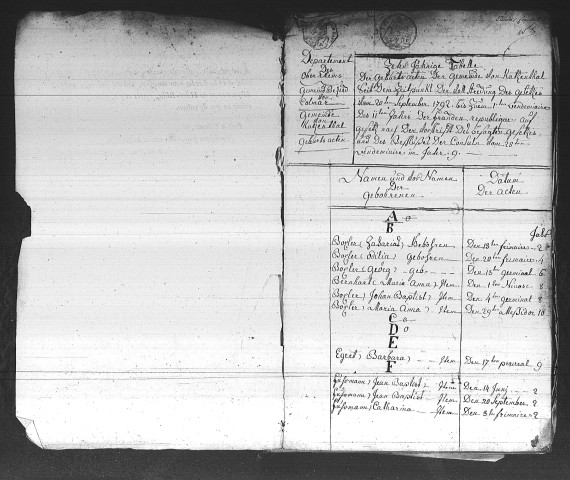 Departement
Des
Ober Rheins
Gemeind Bezirk
von
Colmar
Gemeinde
von
Katzenthal
Geburts acten
Zehn Jährige Tabelle
Der Geburts acten Der Gemeinde von Katzenthal
Seit Dem Zeitpunkt Der Vollstreckung Des Gesetzes
vom 20ten September 1792. bis zum 1ten vendemiaire
Des 11ten Jahrs Der franken republique auf
gesetzt nach Der vorschrift Des besagten Gesetzes
und Des Beschlusses Der Consuln vom 20ten
vendemiaire im Jahr 9
Namen und vor Namen
Der
Gebohrenen
Datum
Der acten
Jahr
A
B
(Zacharias) Gebohren Den 18ten frimaire 2
(Odilia) gebohren Den 20ten frimaire 4
(Georg) gebo Den 15ten germinal 6
Bernhard (Maria Anna) Item Den 1ten Nivos 8
(Johan Baptist) Item Den 4ten germinal 8
(Maria Anna) Item Den 29ten Messidor 10
C
D
E
Egert (Barbara) Item Den 17ten prereal 9
F
(Jean Baptist) Item Den 14 Junj 2
(Jean Baptist) Item Den 20 September 2
(Catharina) Item Den 3ten frimaire 2